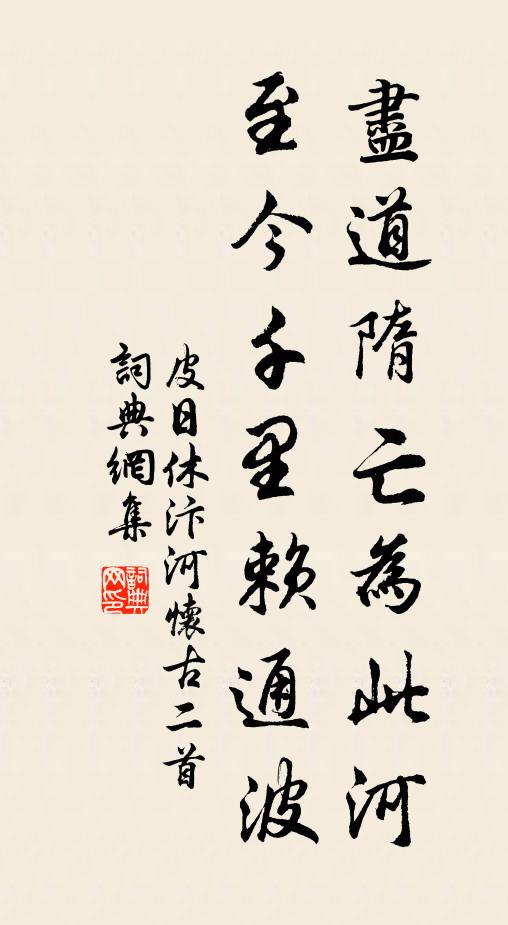 盡道隋亡為此河
至今千里賴通波
皮日休汴河懷古二首
詞典網集
詞典
網印